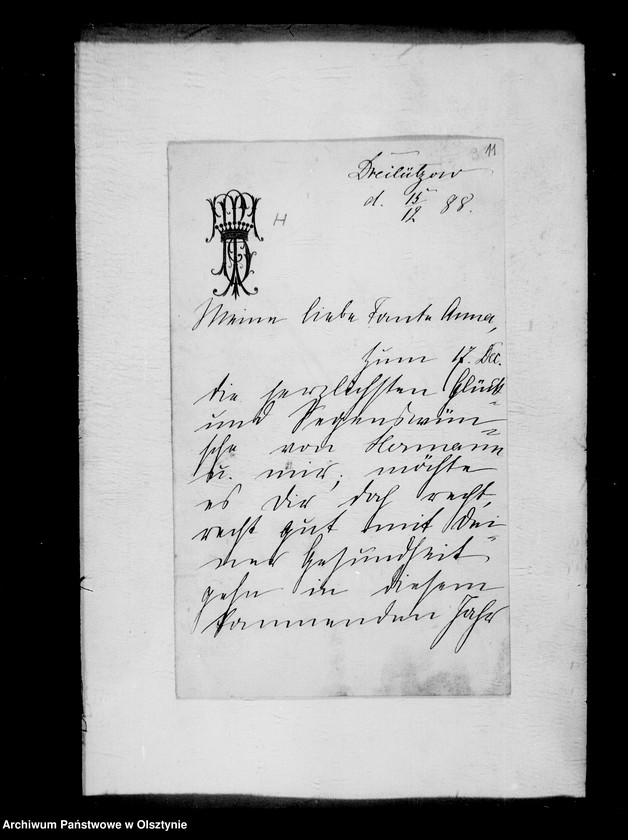 11
Dreilützow
d. 15/12 88.
H
Meine liebe Tante Anna,
zum 17. Dec.
die herzlichsten Glück-
und Segenswün-
sche von Hermann
u. mir; möchte
es Dir doch recht,
recht gut mit Dei-
ner Gesundheit
gehn in diesem
kommenden Jahr
Archiwum Państwowe w Olsztynie